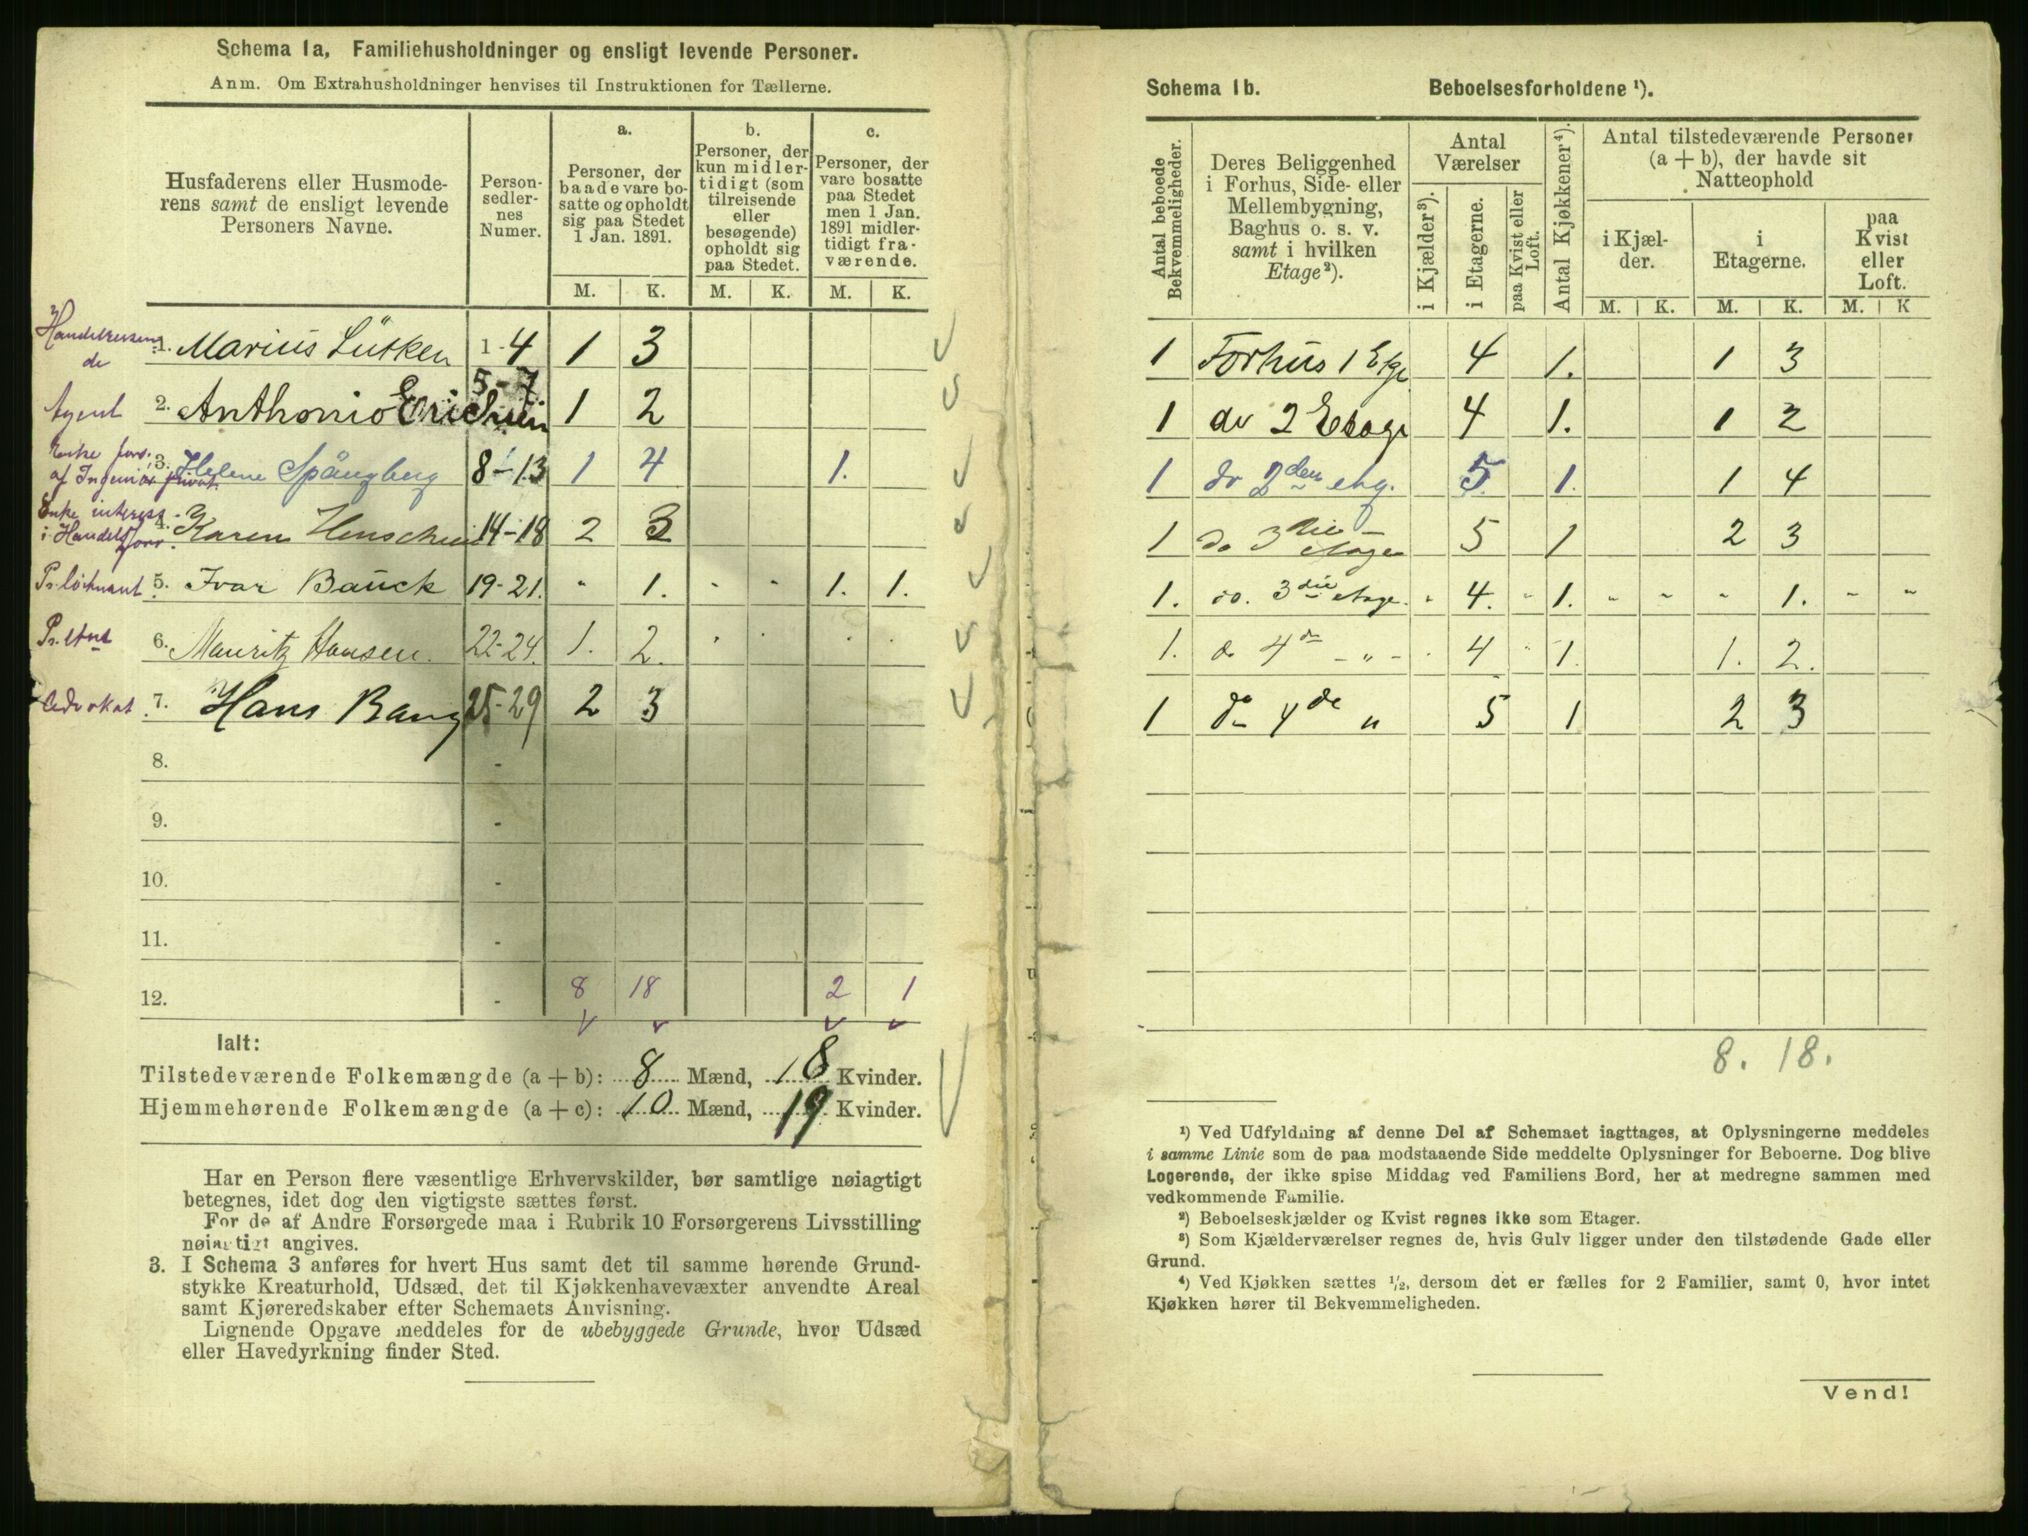 Schema 1a, Familiehusholdninger og ensligt levende Personer.
Anm. Om Extrahusholdninger henvises til Instruktionen for Tællerne.
Husfaderens eller Husmoderens samt de ensligt levende Personers Navne.
Personsedlernes Numer.
a.
Personer, der baade vare bosatte og opholdt sig paa Stedet 1 Jan. 1891.
b.
Personer, der kun midlertidigt (som tilreisende eller besøgende) opholdt sig paa Stedet.
c.
Personer, der vare bosatte paa Stedet men 1 Jan. 1891 midlertidigt fraværende.
M. K. M. K. M. K.
Handelreisende 1. Marius Lütken 1-4 1 3
Agent 2. Anthonio Erichsen 5-7 1 2
3. Helene Spångberg 8-13 1 4 1.
Enke 4. Karen Henschien 14-18 2 3
5. Ivar Bauck 19-21. " 1. " " 1. 1.
6. Mauritz Hansen. 22-24. 1. 2.
Advokat 7. Hans Bang 25-29 2 3
8. -
9. -
10. -
11. -
12. - 8 18 2 1
Ialt:
Tilstedeværende Folkemængde (a + b): 8 Mænd, 18 Kvinder.
Hjemmehørende Folkemængde (a + c): 10 Mænd, 19 Kvinder.
Har en Person flere væsentlige Erhvervskilder, bør samtlige nøiagtigt
betegnes, idet dog den vigtigste sættes først.
For de af Andre Forsørgede maa i Rubrik 10 Forsørgerens Livsstilling
nøiagtigt angives.
3. I Schema 3 anføres for hvert Hus samt det til samme hørende Grund-
stykke Kreaturhold, Udsæd, det til Kjøkkenhavevæxter anvendte Areal
samt Kjøreredskaber efter Schemaets Anvisning.
Lignende Opgave meddeles for de ubebyggede Grunde, hvor Udsæd
eller Havedyrkning finder Sted.
Schema 1b. Beboelsesforholdene ¹).
Antal beboede Bekvemmeligheder.
Deres Beliggenhed i Forhus, Side- eller Mellembygning, Baghus o. s. v. samt i hvilken Etage ²).
Antal Værelser
i Kjælder ³).
i Etagerne.
paa Kvist eller Loft.
Antal Kjøkkener ⁴).
Antal tilstedeværende Personer (a + b), der havde sit Natteophold
i Kjælder.
i Etagerne.
paa Kvist eller Loft.
M. K. M. K. M. K
1 Forhus 1 Etge 4 1. 1 3
1 do 2 Etage 4 1. 1 2
1 do 2den etg. 5 1. 1 4
1 do 3die Etage 5 1 2 3
1. do. 3die Etage. " 4. " 1. " " " 1. " "
1. do 4de - " - 4 1. 1. 2.
1 do 4de " 5 1 2 3
8. 18.
¹) Ved Udfyldning af denne Del af Schemaet iagttages, at Oplysningerne meddeles
i samme Linie som de paa modstaaende Side meddelte Oplysninger for Beboerne. Dog blive
Logerende, der ikke spise Middag ved Familiens Bord, her at medregne sammen med
vedkommende Familie.
²) Beboelseskjælder og Kvist regnes ikke som Etager.
³) Som Kjælderværelser regnes de, hvis Gulv ligger under den tilstødende Gade eller
Grund.
⁴) Ved Kjøkken sættes ½, dersom det er fælles for 2 Familier, samt 0, hvor intet
Kjøkken hører til Bekvemmeligheden.
Vend!